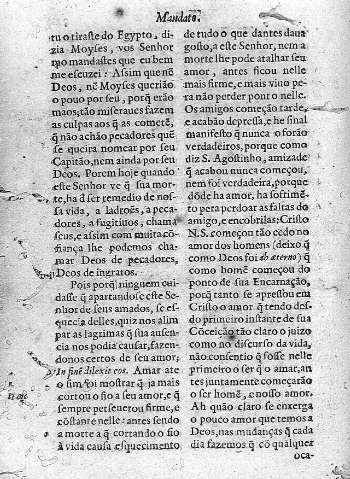 Mandato.
tu o tiraste do Egypto, di-
zia Moyses, vos Senhor
mo mandastes que eu bem
me escuzei: Assim que nẽ
Deos, nẽ Moyses queriāo
o pouo por seu, porq̃ erāo
maos; tāo miseraues fazem
as culpas aos q̃ as cometẽ,
q̃ nāo achāo pecadores quẽ
se queira nomear por seu
Capitāo, nem ainda por seu
Deos. Porem hoje quando
este Senhor ve q̃ sua mor-
te, ha d ser remedio de nos-
sa vida, a ladroẽs, a peca-
dores, a fugitiuos, chama
seus, e assim com muita cō-
fiança lhe podemos cha-
mar Deos de pecadores,
Deos de ingratos.
Pois porq̃ ninguem cui-
dasse q̃ apartandose este Se-
nhor de seus amados, se es-
quecia delles, quiz nos alim
par as lagrimas q̃ sua ausen
cia nos podia causar, fazen-
donos certos de seu amor;
In finẽ dilexit eos. Amar ate
o fim foi mostrar q̃ ja mais
cortou o fio a seu amor, e q̃
sempre perseuerou firme, e
cōstante nelle: antes sendo
a morte a q̃ cortando o fio
à vida causa esquecimento
de tudo o que dantes daua
gosto, a este Senhor, nem a
morte lhe pode atalhar seu
amor, antes ficou nelle
mais firme, e mais viuo pe-
ra nāo perder ponto nelle.
Os amigos começāo tarde,
e acabāo depressa, e he sinal
manifesto q̃ nunca o forāo
verdadeiros, porque como
diz S. Agostinho, amizade
q̃ acabou nunca começou,
nem foi verdadeira, porque
dōde ha amor, ha sofrimẽ-
to pera perdoar as faltas do
amigo, e encobrilas; Cristo
N. S. começou tāo cedo no
amor dos homens (deixo q̃
como Deos foi ab æterno) q̃
como homẽ começou do
ponto de sua Encarnaçāo,
porq̃ tanto se apressou em
Cristo o amor q̃ tendo des-
do primeiro instante de sua
Cōceiçāo tāo claro o juizo
como no discurso da vida,
nāo consentio q̃ fosse nelle
primeiro o ser q̃ o amar, an
tes juntamente começarāo
o ser homẽ, e nosso amor.
Ah quāo claro se enxerga
o pouco amor que temos a
Deos, nas mudanças q̃ cada
dia fazemos q̃ cō qualquer
oca-